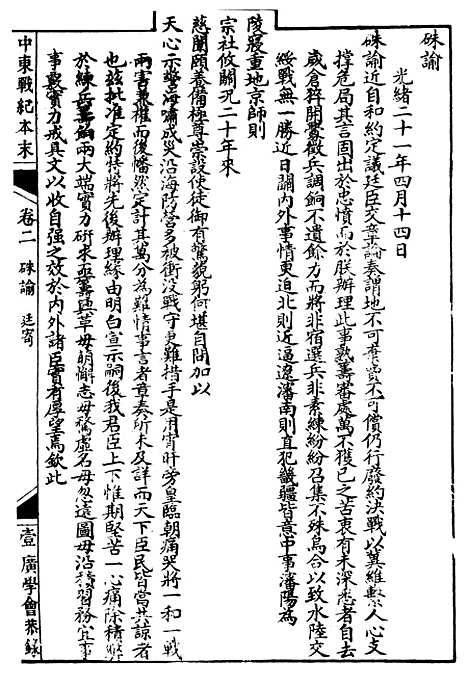 硃諭
光緒二十一年四月十四日
硃諭近自和約定議廷臣交章論奏謂地不可棄費不可償仍行廢約決戰以冀維繫人心支
撐危局其言固出於忠憤而於朕辦理此事熟籌審處萬不獲已之苦衷有未深悉者自去
歲倉猝開釁徵兵調餉不遺餘力而將非宿選兵非素練紛紛召集不殊烏合以致水陸交
綏戰無一勝近日關內外事情更迫北則近逼遼瀋南則直犯畿疆皆意中事瀋陽為
陵寢重地京師則
宗社攸關況二十年來
慈闈頤養備極尊崇設使徒御有驚藐躬何堪自問加以
天心示警海嘯成災沿海防營多被衝沒戰守更難措手是用宵旰旁皇臨朝痛哭將一和一戰
兩害熟權而後幡然定計其萬分為難情事言者章奏所未及詳而天下臣民皆當共諒者
也茲批准定約特將先後辦理緣由明白宣示嗣後我君臣上下惟期堅苦一心痛除積弊
於練兵籌餉兩大端實力研求亟籌興革毋萌懈志毋騖虛名毋忽遠圖毋沿積習務宜事
事覈實力戒具文以收自强之效於內外諸臣實有厚望焉欽此
中東戰紀本末
卷二 硃諭 廷寄
壹 廣學會恭錄